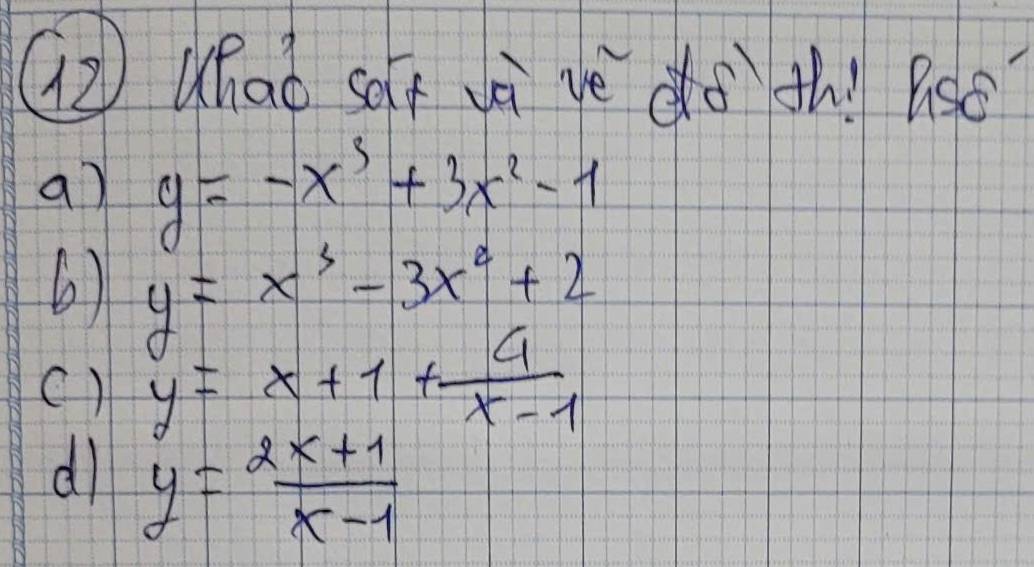 12 Khảo sát và vẽ đồ thị hsố
a) y = -x³ + 3x² - 1
b) y = x³ - 3x² + 2
c) y = x + 1 + 4/(x - 1)
d) y = (2x + 1)/(x - 1)